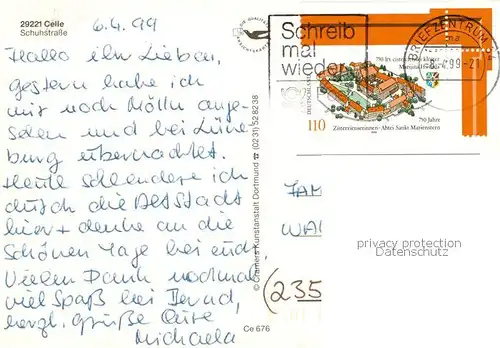 29221 Celle
Schuhstraße
6.4.99
Hallo ihr Lieben,
gestern habe ich
mir noch Mölln ange-
sehen und bei Lüne-
burg übernachtet.
Heute schlendere ich
durch die Altstadt
hier + denke an die
schönen Tage bei euch.
Vielen Dank nochmal,
viel Spaß bei Bernd,
herzl. Grüße Eure
Michaela
© Cramers Kunstanstalt Dortmund ☎ (0231) 528238
Ce 676
Schreib
mal
wieder
BRIEFZENTRUM
-8.4.99-21
DEUTSCHLAND
110
750 Jahre
Zisterzienserinnen-Abtei Sankt Marienstern
FAM
WA
(235
privacy protection
Datenschutz